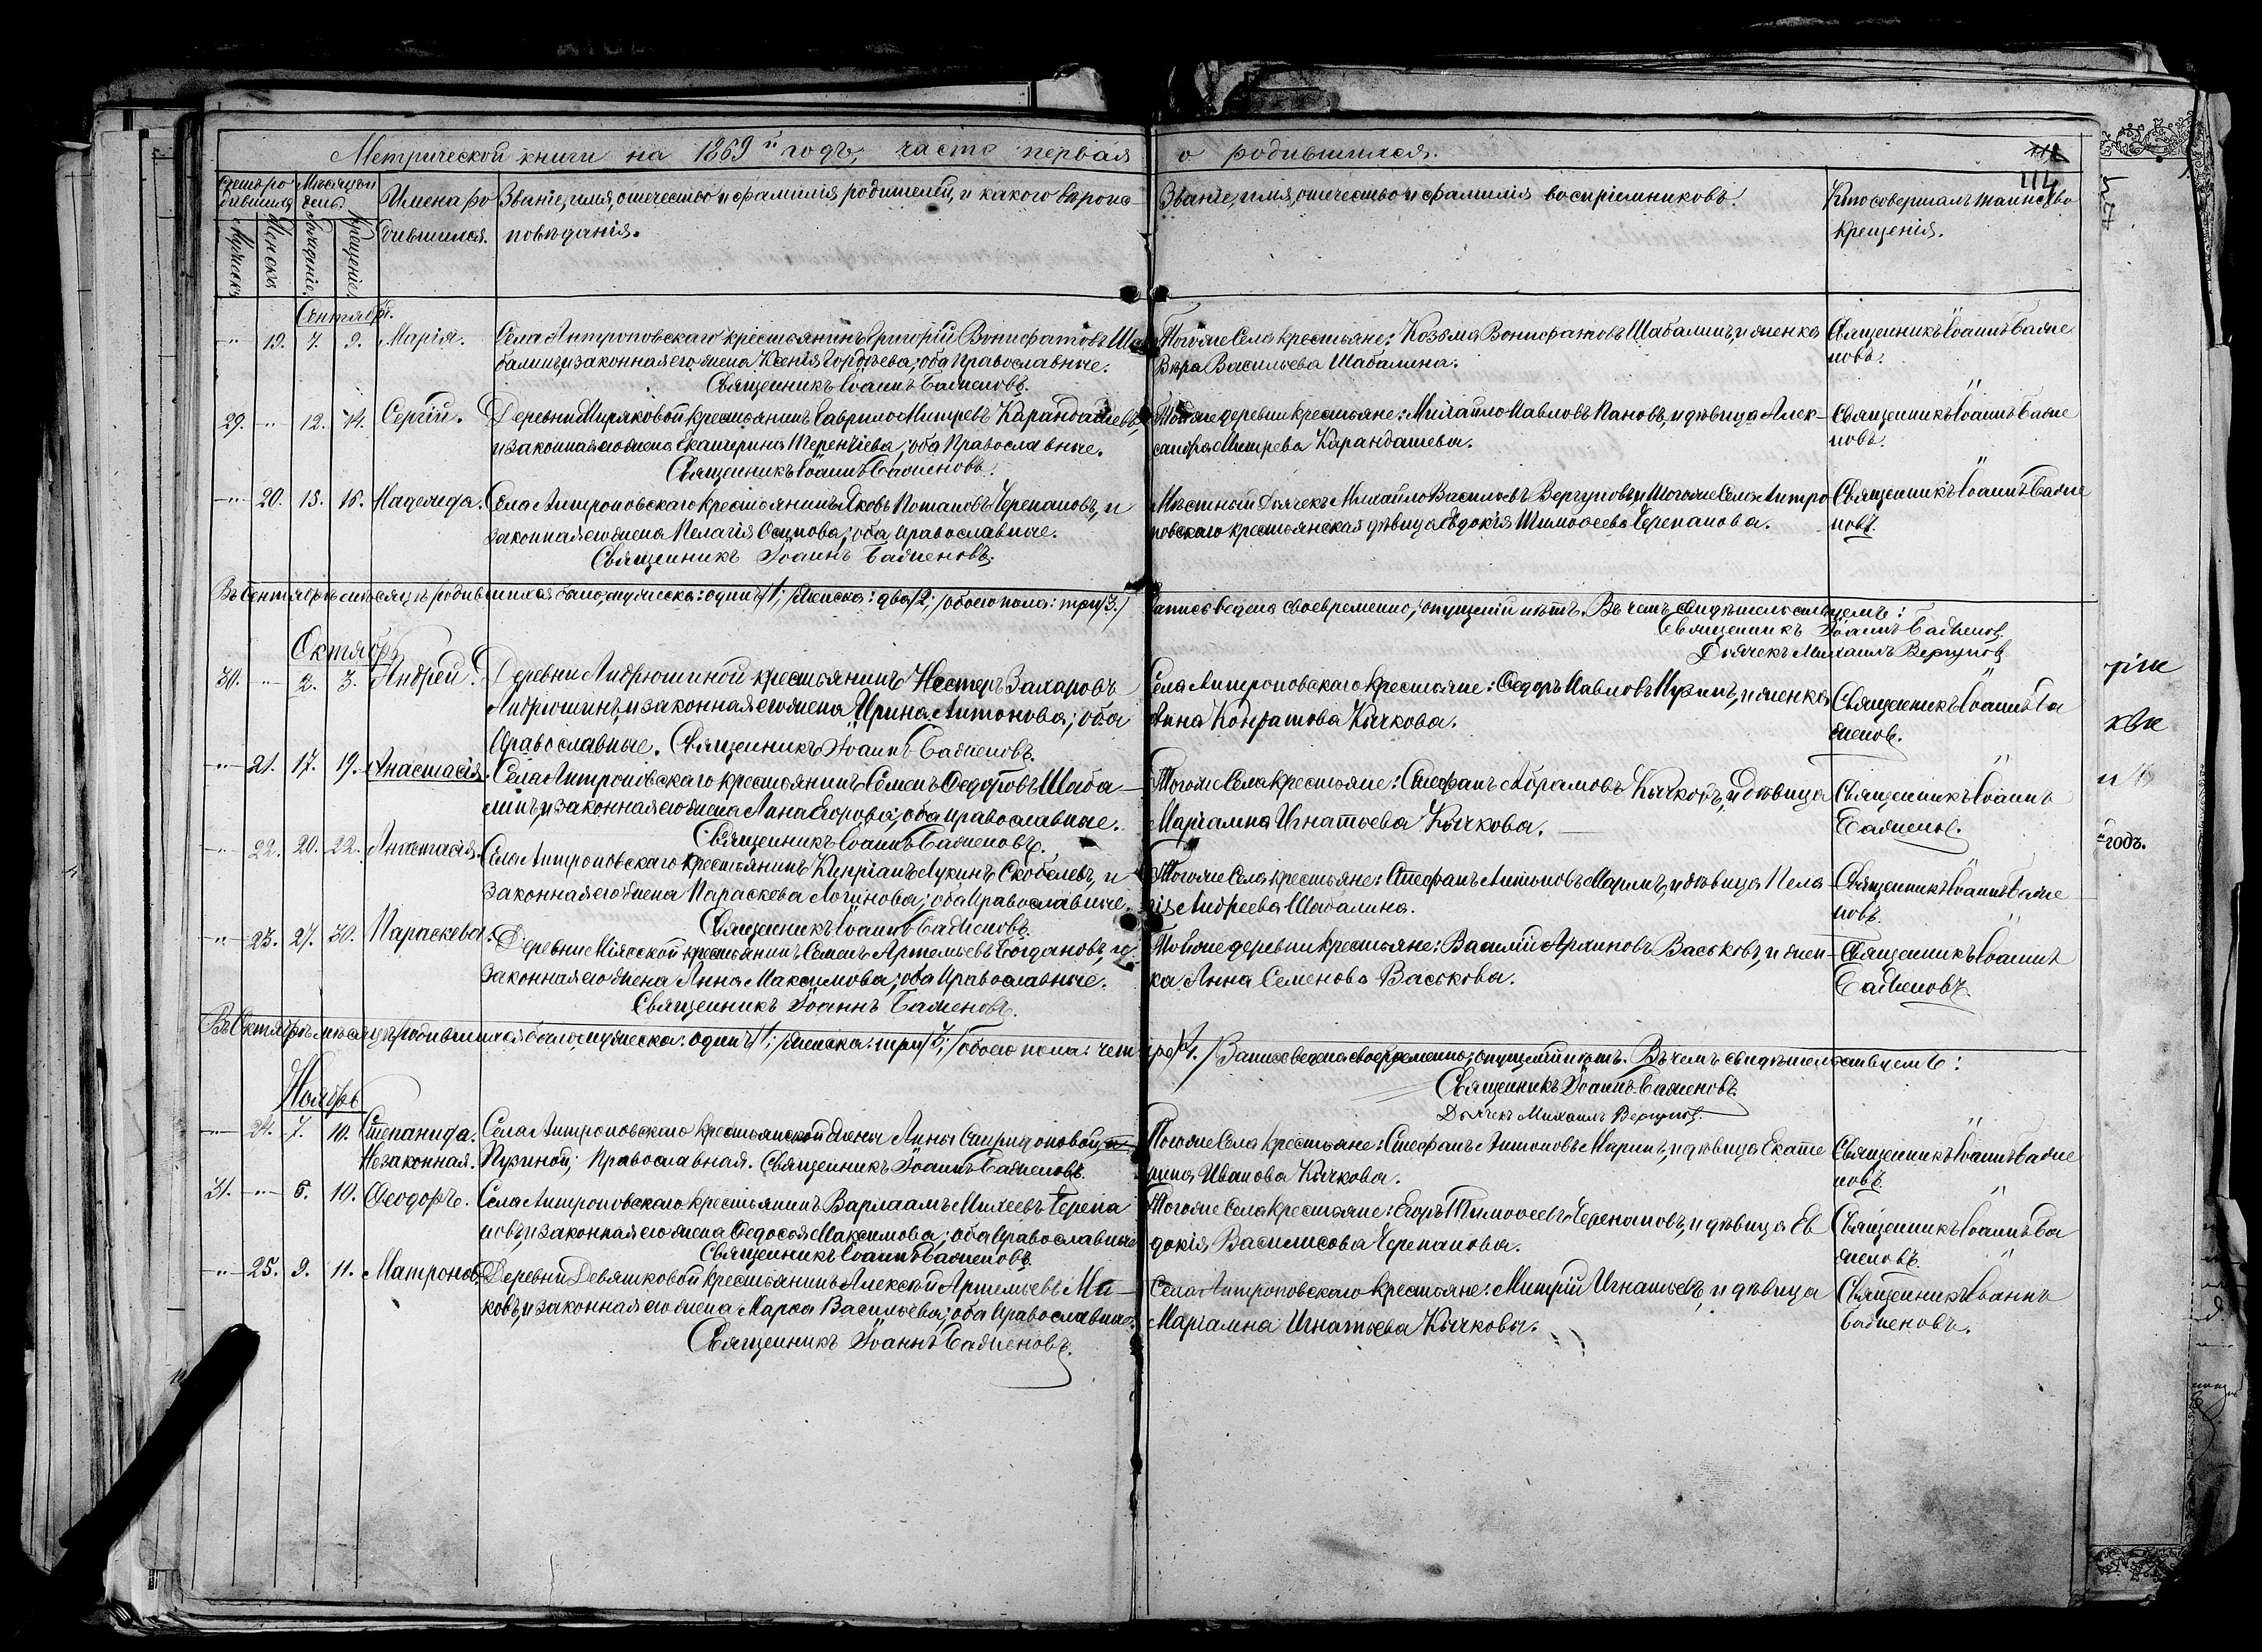 Метрической книги на 1869й годъ, часть первая о родившихся.
114
Счетъ ро
дившихся
Мѣсяцъ и
день.
Имена ро
дившихся.
Званіе, имя, отечество и фамилія родителей, и какого вѣроис
повѣданія.
Званіе, имя, отечество и фамилія воспріемниковъ.
Кто совершалъ таинство
крещенія.
Мужескъ
Женскъ
Рожденіе.
Крещеніе.
Сентябрь.
-"- 19. 7. 9. Марія. Села Антроповскаго крестьянинъ Григорій Вонифатовъ Ша
балинъ, и законная его жена Ксенія Гордѣева; оба православные.
Священникъ Іоаннъ Баженовъ.
Тогоже Села крестьяне: Козьма Вонифатовъ Шабалинъ, и женка
Вѣра Васильева Шабалина.
Священникъ Іоаннъ Баже
новъ.
29. -"- 12. 14. Сергій. Деревни Миряковой крестьянинъ Гаврило Митревъ Карандашевъ,
и законная его жена Екатерина Терентіева; оба Православные.
Священникъ Іоаннъ Баженовъ.
Тойже деревни крестьяне: Михайло Павловъ Пановъ, и дѣвица Алек-
сандра Митрева Карандашева.
Священникъ Іоаннъ Баже
новъ.
-"- 20. 15. 16. Надежда. Села Антроповскаго крестьянинъ Яковъ Потаповъ Черепановъ, и
законная его жена Пелагія Осипова; оба православные.
Священникъ Іоаннъ Баженовъ.
Мѣстной Дьячекъ Михайло Васильевъ Вергуновъ, и тогоже Села Антро
повскаго крестьянская дѣвица Евдокія Тимофеева Черепанова.
Священникъ Іоаннъ Баже
новъ.
Въ Сентябрѣ мѣсяцѣ родившихся было, мужеска: одинъ /1; / женска: два /2; / обоего пола: три /3. /
Запись ведена своевременно; опущеній нѣтъ. Въ чемъ свидѣтельствуемъ:
Священникъ Іоаннъ Баженовъ.
Дьячекъ Михаилъ Вергуновъ
Октябрь
30. -"- 2. 3. Андрей. Деревни Андрюшиной крестьянинъ Нестеръ Захаровъ
Андрюшинъ, и законная его жена Ирина Антонова; оба
Православные. Священникъ Іоаннъ Баженовъ.
Села Антроповскаго крестьяне: Ѳедоръ Павловъ Пузинъ, и женка
Анна Кондратова Кычкова.
Священникъ Іоаннъ Ба
женовъ.
-"- 21. 17. 19. Анастасія. Села Антроповскаго крестьянинъ Семенъ Ѳедоровъ Шаба-
линъ, и законная его жена Анна Егорова; оба православные.
Священникъ Іоаннъ Баженовъ.
Тогоже Села крестьяне: Стефанъ Абрамовъ Кычковъ, и дѣвица
Маріамна Игнатьева Кычкова.
Священникъ Іоаннъ
Баженовъ.
-"- 22. 20. 22. Анастасія. Села Антроповскаго крестьянинъ Кипріанъ Лукинъ Скобелевъ, и
законная его жена Параскева Логинова; оба Православные.
Священникъ Іоаннъ Баженовъ.
Тогоже Села крестьяне: Стефанъ Антоновъ Маринъ, и дѣвица Пела-
гія Андреева Шабалина.
Священникъ Іоаннъ Баже
новъ.
-"- 23. 27. 30. Параскева. Деревни Міясской крестьянинъ Семенъ Артемьевъ Богдановъ, и
законная его жена Анна Максимова; оба Православные.
Священникъ Іоаннъ Баженовъ.
Тойже деревни крестьяне: Василій Архиповъ Васьковъ, и жен-
ка Анна Семенова Васькова.
Священникъ Іоаннъ
Баженовъ.
Въ Октябрѣ мѣсяцѣ родившихся было, мужеска: одинъ /1; / женска: три /3; / обоего пола: четыре /4. / Запись ведена своевременно; опущеній нѣтъ. Въ чемъ свидѣтельствуемъ:
Священникъ Іоаннъ Баженовъ.
Дьячекъ Михаилъ Вергуновъ.
Ноябрь
-"- 24. 7. 10. Степанида. Села Антроповскаго крестьянской жены Анны Спиридоновой
Незаконная. Пузиной; Православная. Священникъ Іоаннъ Баженовъ.
Тогоже Села крестьяне: Стефанъ Антоновъ Маринъ, и дѣвица Екате
рина Иванова Кычкова.
Священникъ Іоаннъ Баже
новъ.
31. -"- 8. 10. Ѳеодоръ. Села Антроповскаго крестьянинъ Варлаамъ Михеевъ Черепа
новъ, и законная его жена Ѳедосья Максимова; оба православные
Священникъ Іоаннъ Баженовъ.
Тогоже Села крестьяне: Егоръ Тимофеевъ Черепановъ, и дѣвица Ев
докія Василисова Черепанова.
Священникъ Іоаннъ Ба
женовъ.
-"- 25. 9. 11. Матрона. Деревни Девяшковой крестьянинъ Алексѣй Артемьевъ Ми-
ковъ, и законная его жена Марѳа Васильева; оба православные.
Священникъ Іоаннъ Баженовъ.
Села Антроповскаго крестьяне: Митрій Игнатьевъ, и дѣвица
Маріамна Игнатьева Кычковы.
Священникъ Іоаннъ
Баженовъ.
годъ.